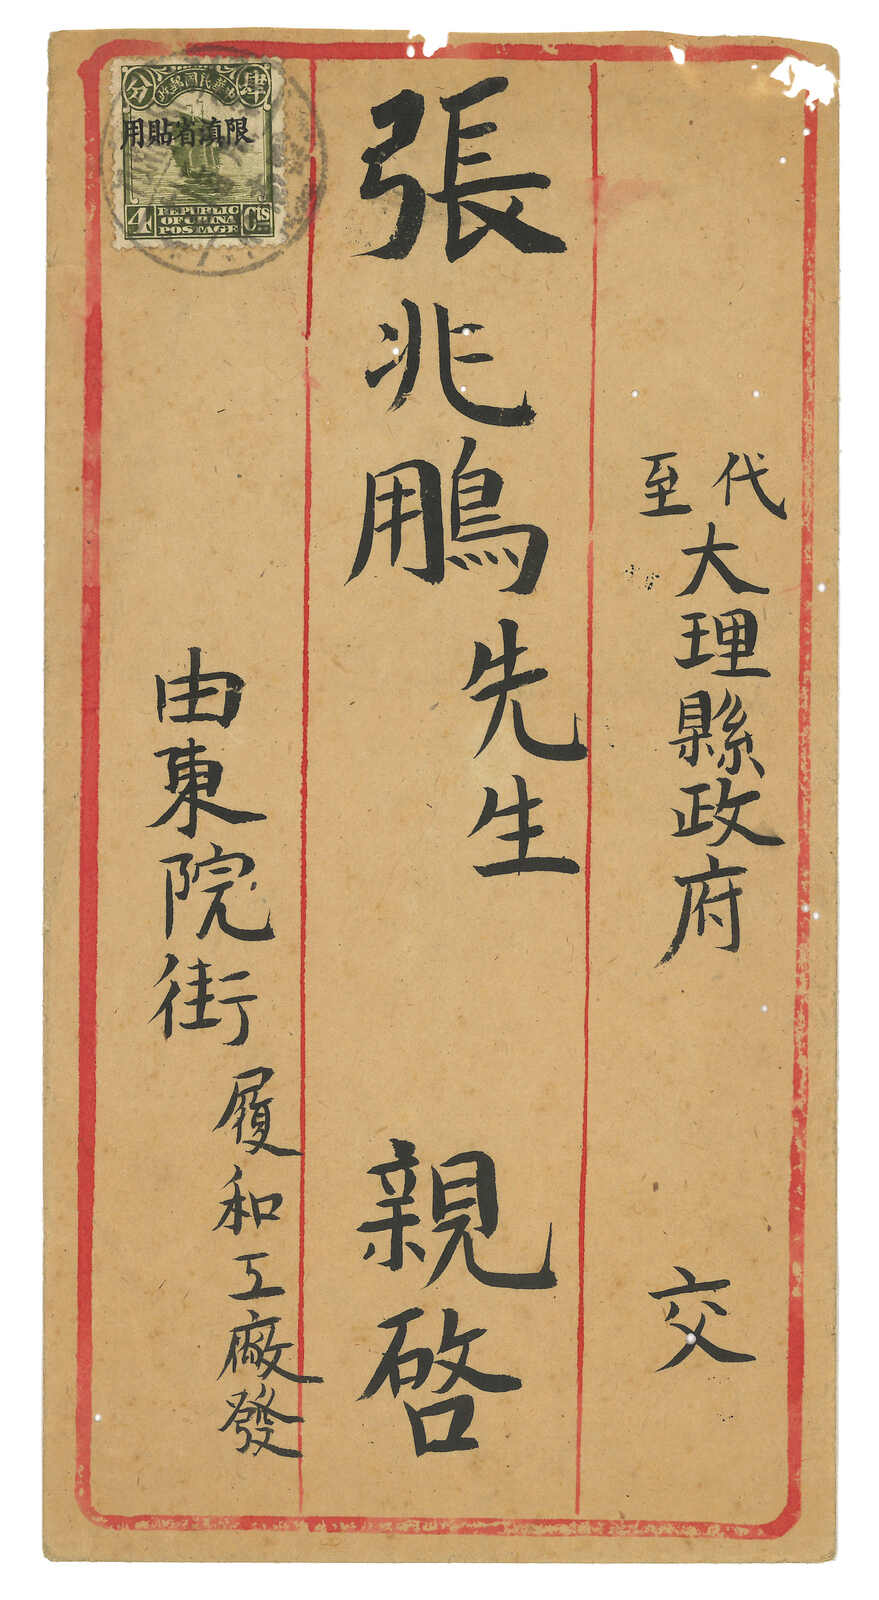 代至大理縣政府 交
張兆鵬先生 親啓
由東院街履和工廠發
肆 中華民國郵政 分
限滇省貼用
4 REPUBLIC OF CHINA POSTAGE Cts